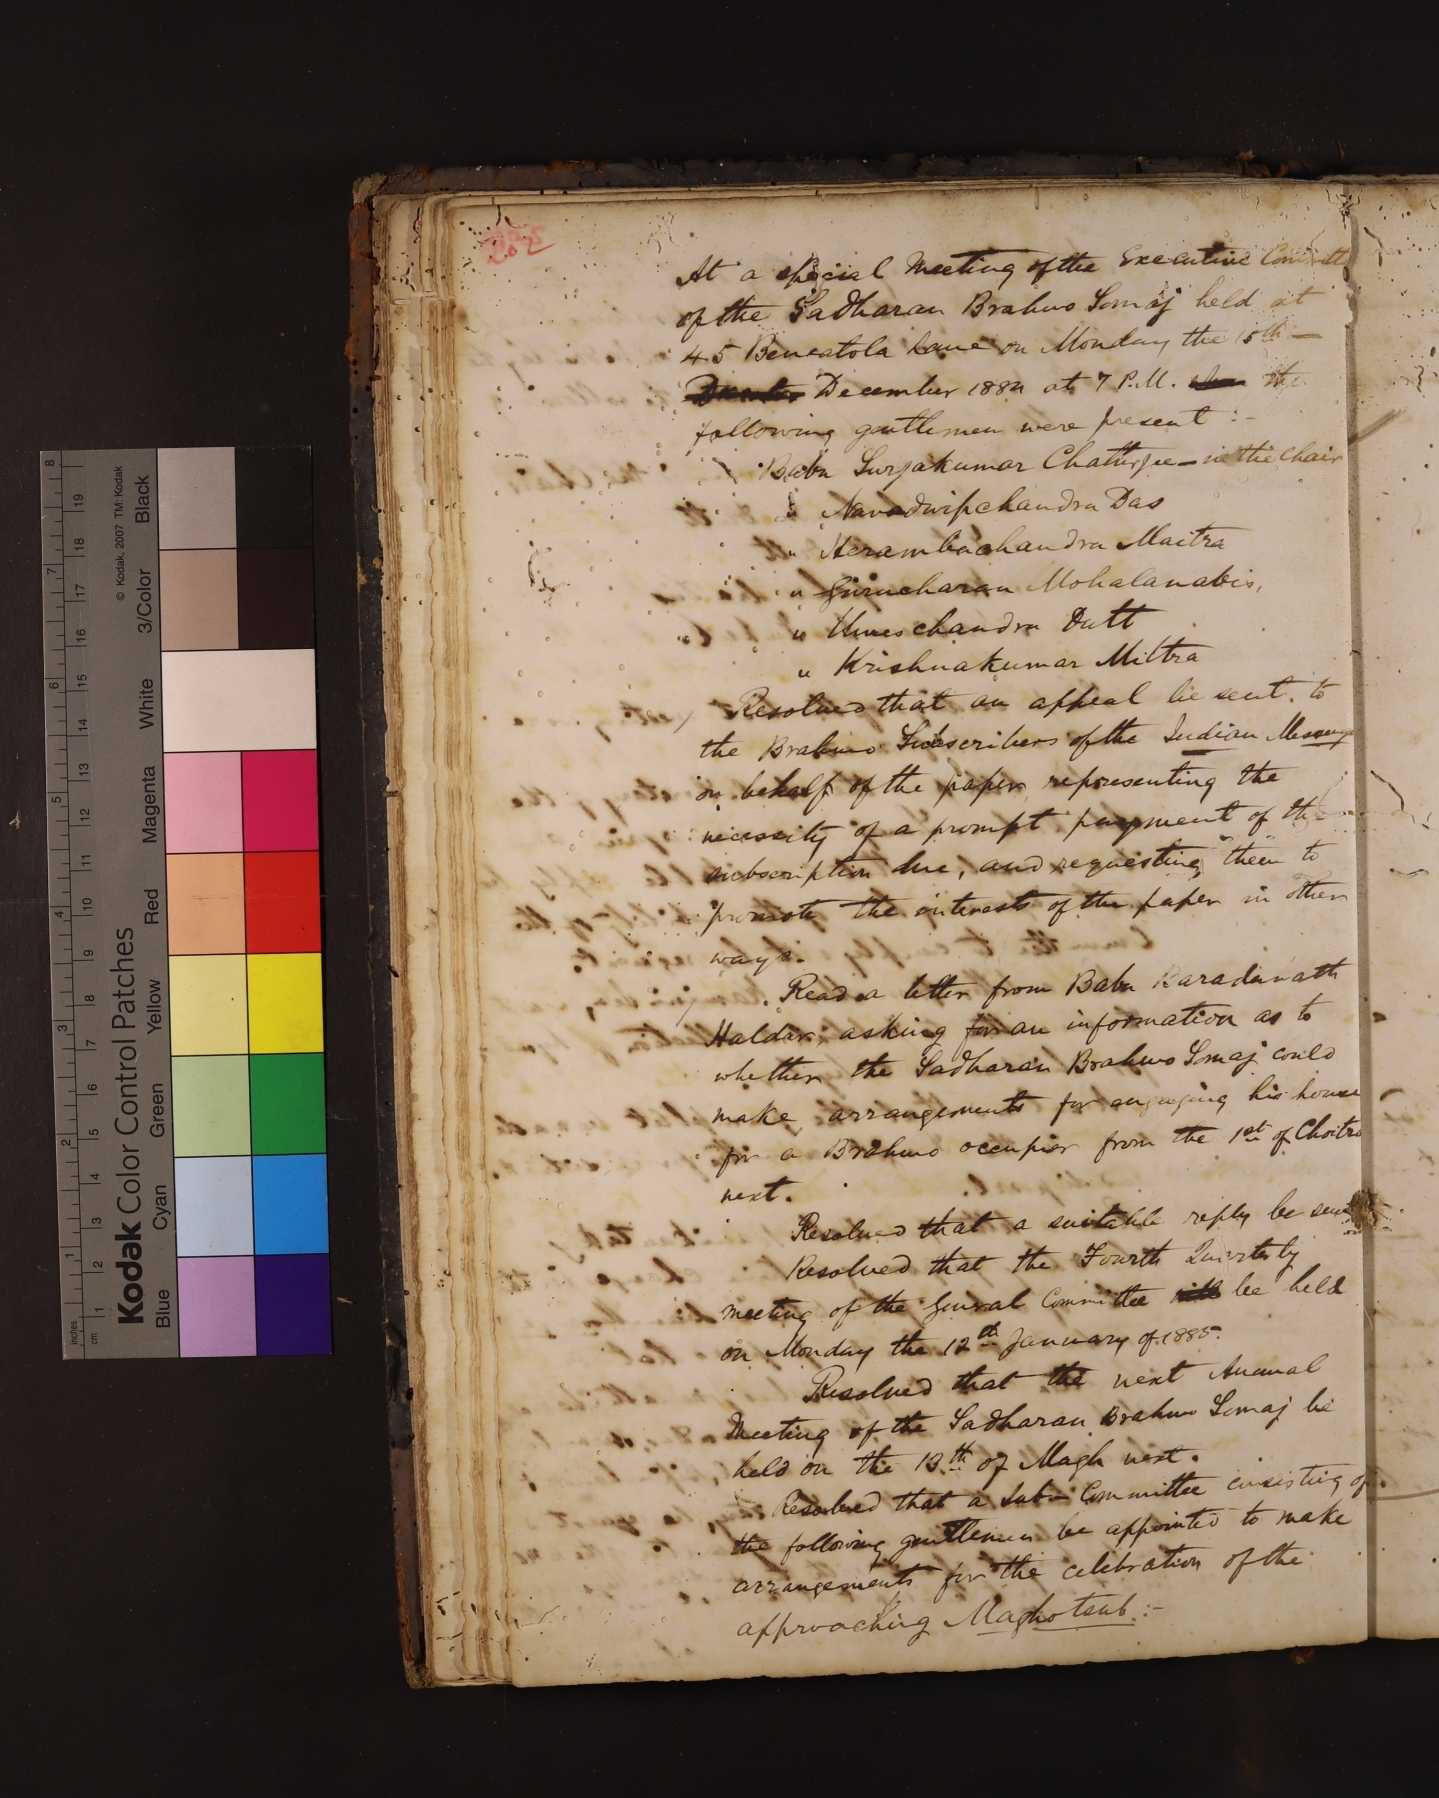 At a special Meeting of the Executive Committe
of the Sadharan Brahmo Somaj held at
45 Beneatola Lane on Monday the 15th —
December 1884 at 7 P.M. the
following gentlemen were present :-
Babu Surjakumar Chatterjee — in the Chair
" Navadwipchandra Das
" Herambachandra Maitra
" Gurucharan Mohalanabis,
" Umeschandra Dutt
" Krishnakumar Mittra
Resolved that an appeal be sent to
the Brahmo Subscribers of the Indian Messenger
on behalf of the paper representing the
necessity of a prompt payment of the
subscription due, and requesting them to
promote the interests of the paper in other
ways.
Read a letter from Babu Baradanath
Haldar asking for an information as to
whether the Sadharan Brahmo Somaj could
make arrangements for engaging his house
for a Brahmo occupier from the 1st of Choitra
next.
Resolved that a suitable reply be sent
Resolved that the Fourth Quarterly
meeting of the General Committee be held
on Monday the 12th January of 1885.
Resolved that the next Annual
Meeting of the Sadharan Brahmo Somaj be
held on the 13th of Magh next.
Resolved that a Sub-Committee consisting of
the following gentlemen be appointed to make
arrangements for the celebration of the
approaching Maghotsub :-
Kodak Color Control Patches
© Kodak, 2007 TM: Kodak
Blue Cyan Green Yellow Red Magenta White 3/Color Black
inches 1 2 3 4 5 6 7 8
cm 1 2 3 4 5 6 7 8 9 10 11 12 13 14 15 16 17 18 19